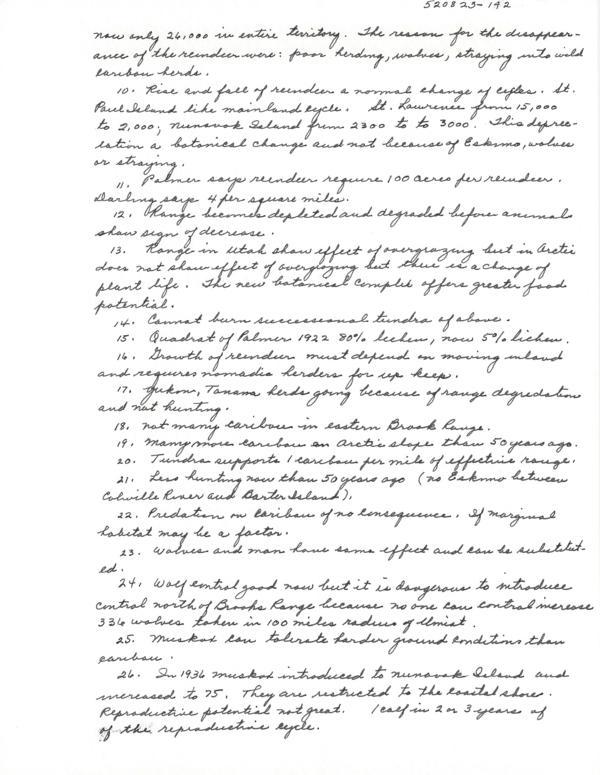 520823-142
now only 26,000 in entire territory. The reason for the disappear-
ance of the reindeer were: poor herding, wolves, straying into wild
caribou herds.
10. Rise and fall of reindeer a normal change of cycles. St.
Paul Island like mainland cycle. St. Lawrence from 15,000
to 2,000; Nunavok Island from 2300 to to 3000. This deprec-
iation a botanical change and not because of Eskimo, wolves
or straying.
11. Palmer says reindeer require 100 acres per reindeer.
Darling says 4 per square miles.
12. Range becomes depleted and degraded before animals
show sign of decrease.
13. Range in Utah show effect of overgrazing but in Arctic
does not show effect of overgrozing but there is a change of
plant life. The new botanical complex offers greater food
potential.
14. Cannot burn successional tundra of above.
15. Quadrat of Palmer 1922 80% lichen, now 5% lichen.
16. Growth of reindeer must depend on moving inland
and requires nomadic herders for up keep.
17. Yukon, Tanana herds going because of range degredation
and not hunting.
18. not many caribou in eastern Brook Range.
19. Many more caribou on Arctic slope than 50 years ago.
20. Tundra supports 1 caribou per mile of effective range.
21. Less hunting now than 50 years ago (no Eskimo between
Colville River and Barter Island).
22. Predation on caribou of no consequence. If marginal
habitat may be a factor.
23. Wolves and man have same effect and can be substitut-
ed.
24. Wolf control good now but it is dangerous to introduce
control north of Brooks Range because no one can control increase
336 wolves taken in 100 miles radius of Umiat.
25. Muskox can tolerate harder ground conditions than
caribou.
26. In 1936 muskox introduced to Nunavok Island and
increased to 75. They are restricted to the coastal shore.
Reproductive potential not great. 1 calf in 2 or 3 years of
of the reproductive cycle.